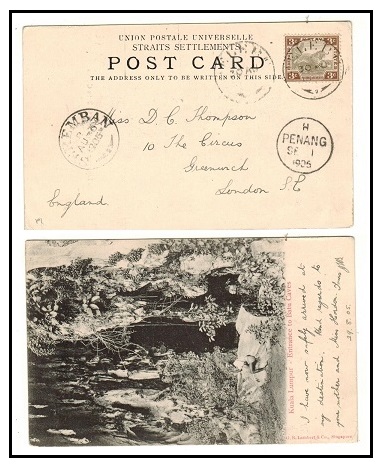 UNION POSTALE UNIVERSELLE
STRAITS SETTLEMENTS.
POST CARD
THE ADDRESS ONLY TO BE WRITTEN ON THIS SIDE.
Miss D. C. Thompson
10 The Circus
Greenwich
London S.E
England
H
PENANG
SE 1
1905
Kuala Lumpur - Entrance to Batu Caves
I have now safely arrived at
my destination. Kind regards to
your mother and
29.8.05
G. R. Lambert & Co., Singapore.